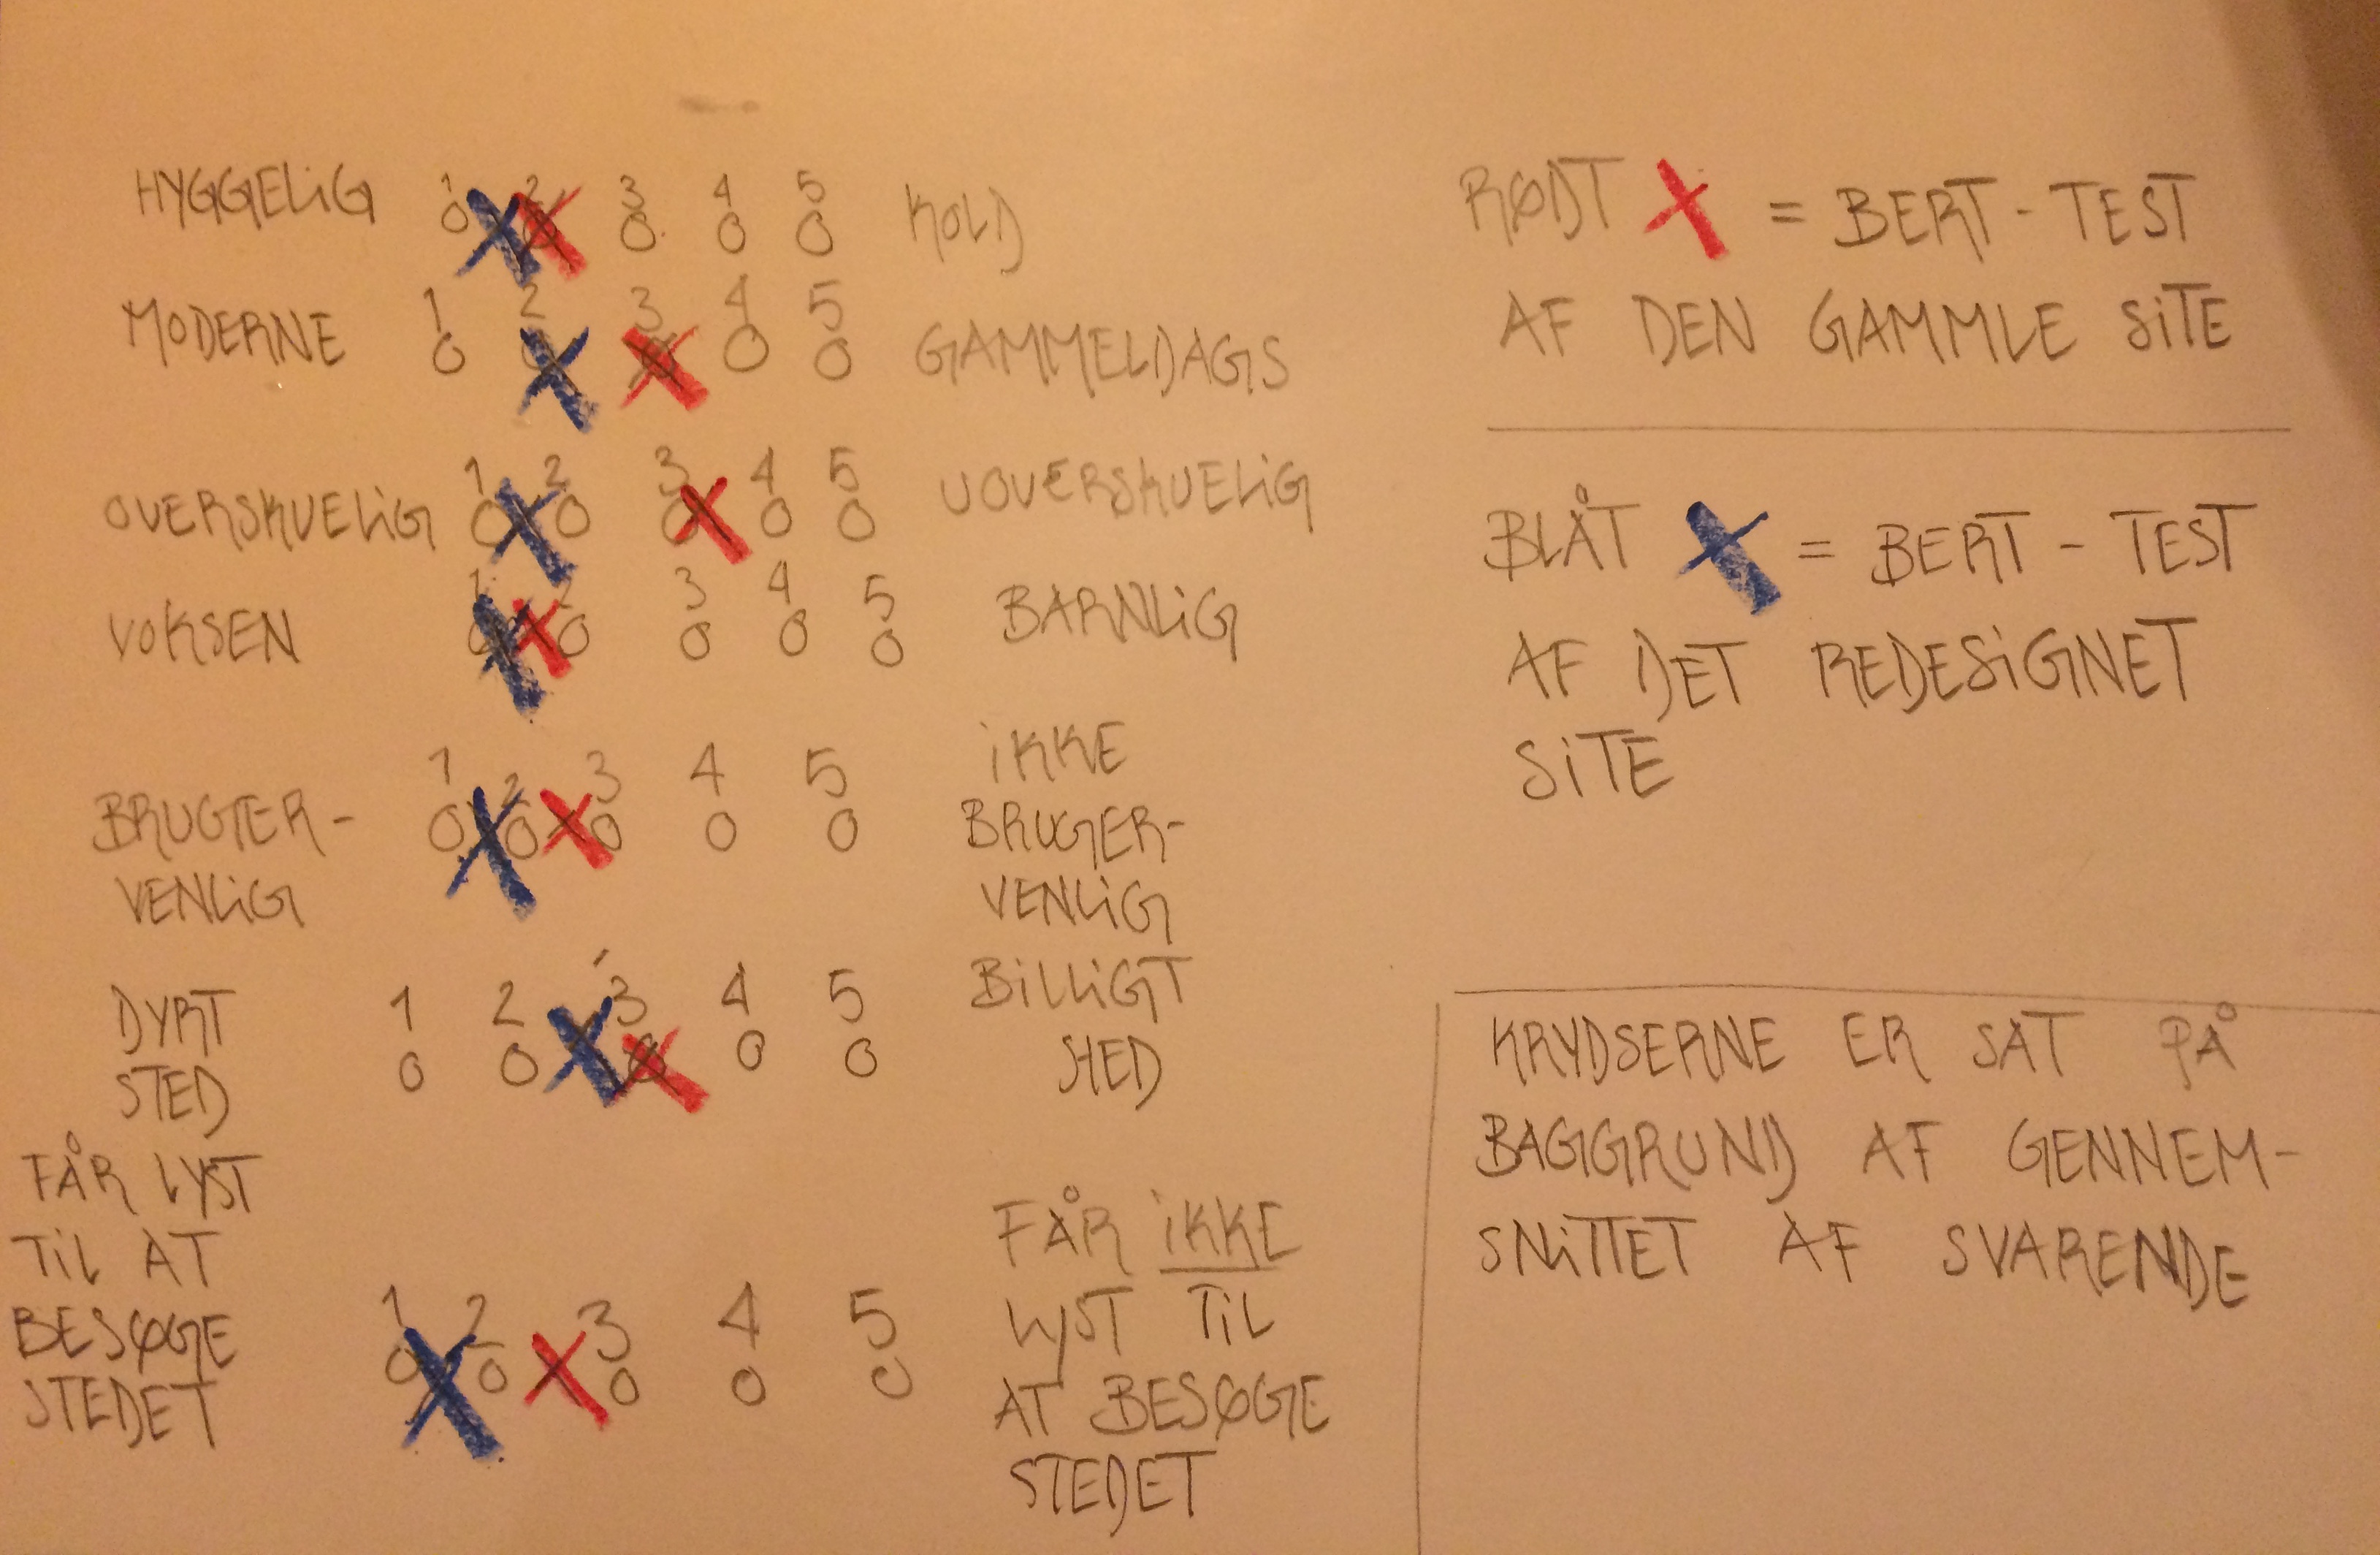 HYGGELIG 1 2 3 4 5 KOLD
MODERNE 1 2 3 4 5 GAMMELDAGS
OVERSKUELIG 1 2 3 4 5 UOVERSKUELIG
VOKSEN 1 2 3 4 5 BARNLIG
BRUGER- 1 2 3 4 5 IKKE
VENLIG BRUGER-
VENLIG
DYRT 1 2 3 4 5 BILLIGT
STED STED
FÅR LYST
TIL AT FÅR IKKE
BESØGE 1 2 3 4 5 LYST TIL
STEDET AT BESØGE
STEDET
RØDT X = BERT - TEST
AF DEN GAMMLE SITE
BLÅT X = BERT - TEST
AF DET REDESIGNET
SITE
KRYDSERNE ER SAT PÅ
BAGGRUND AF GENNEM-
SNITTET AF SVARENDE